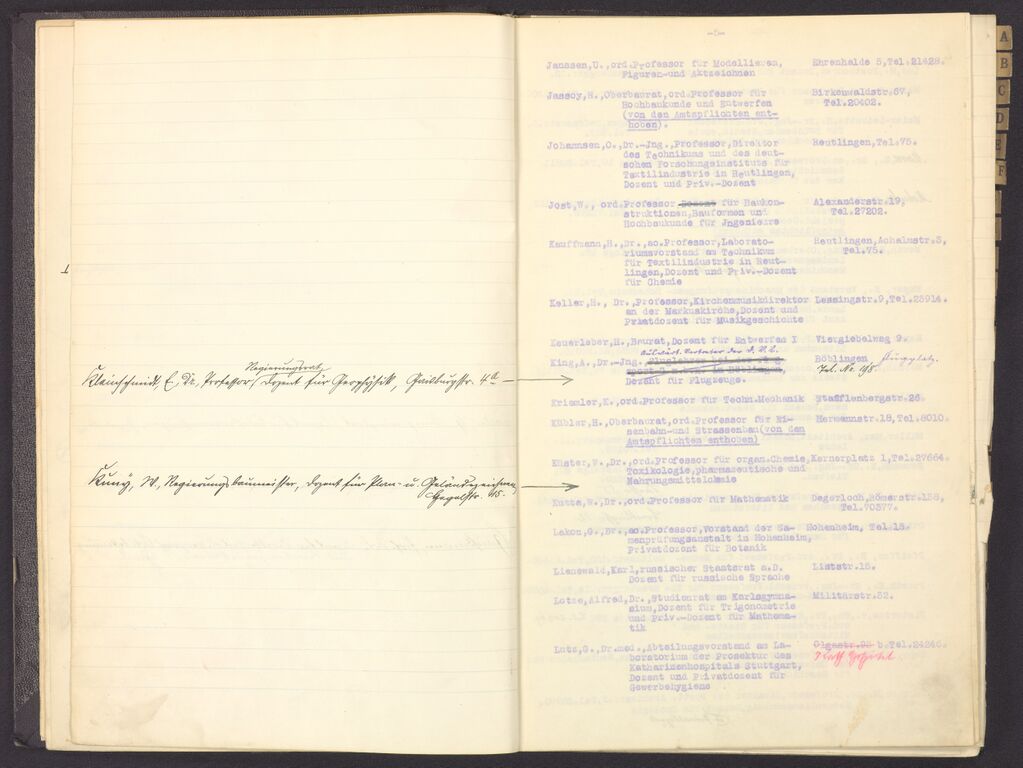 Regierungsrat
Kleinschmidt, E., Dr., Professor, Dozent für Geophysik, Gaisburgstr. 4a
Kuny, W., Regierungsbaumeister, Dozent für Plan- u. Geländezeichnen,
Hegelstr.
-5-
Janssen,U.,ord.Professor für Modellieren, Ehrenhalde 5,Tel.21428.
Figuren-und Aktzeichnen
Jassoy,H.,Oberbaurat,ord.Professor für Birkenwaldstr.67,
Hochbaukunde und Entwerfen Tel.20402.
(von den Amtspflichten ent-
hoben).
Johannsen,O.,Dr.-Jng.,Professor,Direktor Reutlingen,Tel.75.
des Technikums und des deut-
schen Forschungsinstituts für
Textilindustrie in Reutlingen,
Dozent und Priv.-Dozent
Jost,W., ord.Professor Dozent für Baukon- Alexanderstr.19,
struktionen,Bauformen und Tel.27202.
Hochbaukunde für Jngenieure
Kauffmann,H.,Dr.,ao.Professor,Laborato- Reutlingen,Achalmstr.3,
riumsvorstand am Technikum Tel.75.
für Textilindustrie in Reut-
lingen,Dozent und Priv.-Dozent
für Chemie
Keller,H., Dr.,Professor,Kirchenmusikdirektor Lessingstr.9,Tel.25914.
an der Markuskirche,Dozent und
Privatdozent für Musikgeschichte
Keuerleber,H.,Baurat,Dozent für Entwerfen I Viergiebelweg 9.
King,A.,Dr.-Jng. Böblingen
Dozent für Flugzeuge.
Kriemler,K.,ord.Professor für Techn.Mechanik Stafflenbergstr.26.
Kübler,H.,Oberbaurat,ord.Professor für Ei- Hermannstr.18,Tel.8010.
senbahn-und Strassenbau(von den
Amtspflichten enthoben)
Küster,W.,Dr.,ord.Professor für organ.Chemie,Kernerplatz 1,Tel.27664.
Toxikologie,pharmazeutische und
Nahrungsmittelchemie
Kutta,W.,Dr.,ord.Professor für Mathematik Degerloch,Römerstr.138,
Tel.70377.
Lakon,G.,Dr.,ao.Professor,Vorstand der Sa- Hohenheim, Tel.15.
menprüfungsanstalt in Hohenheim,
Privatdozent für Botanik
Lienewald,Karl,russischer Staatsrat a.D. Liststr.15.
Dozent für russische Sprache
Lotze,Alfred,Dr.,Studienrat am Karlsgymna- Militärstr.32.
sium,Dozent für Trigonometrie
und Priv.-Dozent für Mathema-
tik
Lutz,G.,Dr.med.,Abteilungsvorstand am La- Olgastr.93 b,Tel.24246.
boratorium der Prosektur des
Katharinenhospitals Stuttgart,
Dozent und Privatdozent für
Gewerbehygiene
A
B
C
D
E
F